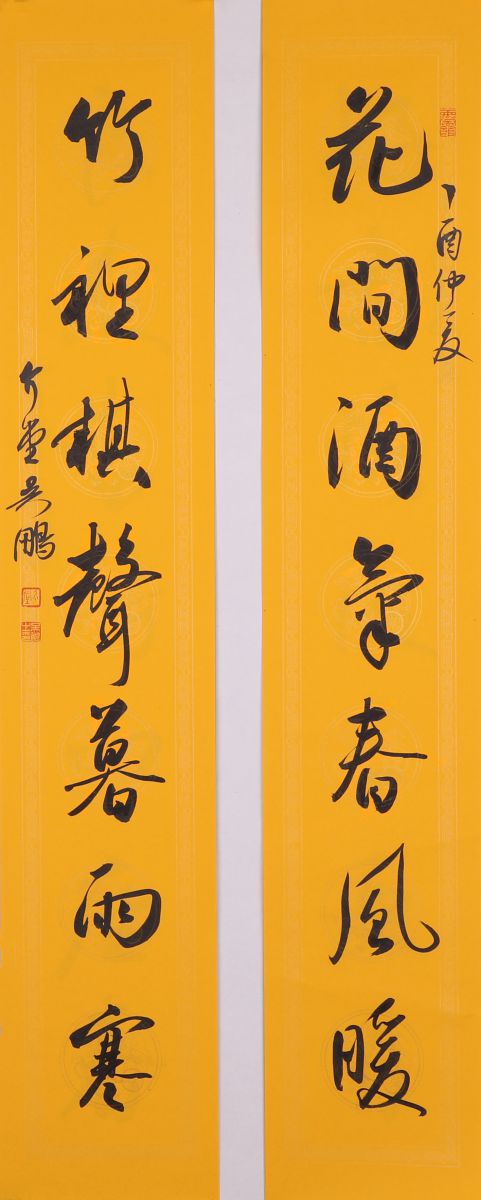 花間酒氣春風暖
丁酉仲夏
竹裡棋聲暮雨寒
介堂吳鵬